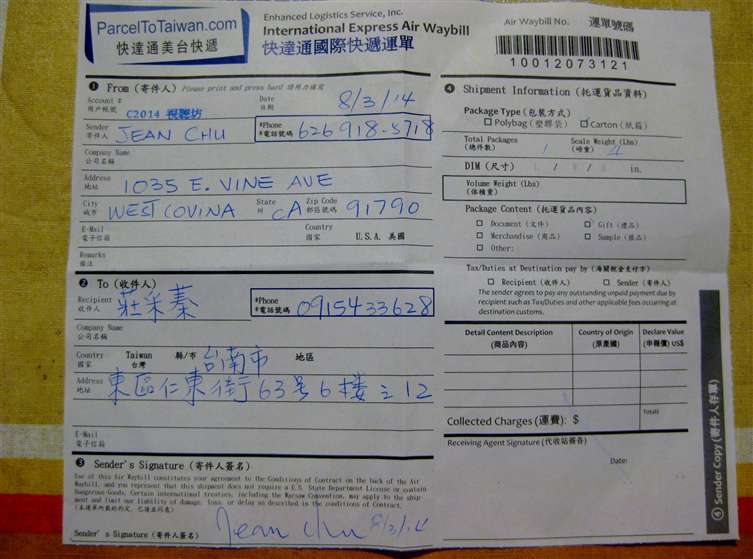 ParcelToTaiwan.com
快達通美台快遞
Enhanced Logistics Service, Inc.
International Express Air Waybill
快達通國際快遞運單
Air Waybill No. 運單號碼
10012073121
❶ From (寄件人) Please print and press hard 請用力填寫
Account #
用戶帳號
C2014
Date
日期
8/3/14
Sender
寄件人
JEAN CHU
*Phone
*電話號碼
626 918-5718
Company Name
公司名稱
Address
地址
1035 E. VINE AVE
City
城市
WEST COVINA
State
州
CA
Zip Code
郵區號碼
91790
E-Mail
電子信箱
Country
國家
U.S.A. 美國
Remarks
備注
❷ To (收件人)
Recipient
收件人
莊采蓁
*Phone
*電話號碼
0915433628
Company Name
公司名稱
Country
國家
Taiwan
台灣
縣/市 台南市 地區
Address
地址
東區仁東街63号6樓之12
E-Mail
電子信箱
❸ Sender's Signature (寄件人簽名)
Use of this Air Waybill constitutes your agreement to the Conditions of Contract on the back of the Air
Waybill, and you represent that this shipment does not require a U.S. State Department License or contain
Dangerous Goods. Certain international treaties, including the Warsaw Convention, may apply to the ship-
ment and limit our liability of damage, loss, or delay as described in the conditions of Contract.
Sender's Signature (寄件人簽名) Jean Chu 8/3/14
❹ Shipment Information (托運貨品資料)
Package Type (包裝方式)
Polybag (塑膠袋) Carton (紙箱)
Total Packages
(總件數)
1
Scale Weight (Lbs)
(磅重)
4
DIM (尺寸) L / W / H in.
Volume Weight (Lbs)
(体積重)
Package Content (托運貨品內容)
Document (文件) Gift (禮品)
Merchandise (商品) Sample (樣品)
Other:
Tax/Duties at Destination pay by (海關稅金支付方)
Recipient (收件人) Sender (寄件人)
The sender agrees to pay any outstanding unpaid payment due by
recipient such as Tax/Duties and other applicable fees occurring at
destination customs.
Detail Content Description
(商品內容)
Country of Origin
(原產國)
Declare Value
(申報價) US$
Collected Charges (運費): $
Total:
Receiving Agent Signature (代收站簽名)
Date:
④ Sender Copy (寄件人存單)